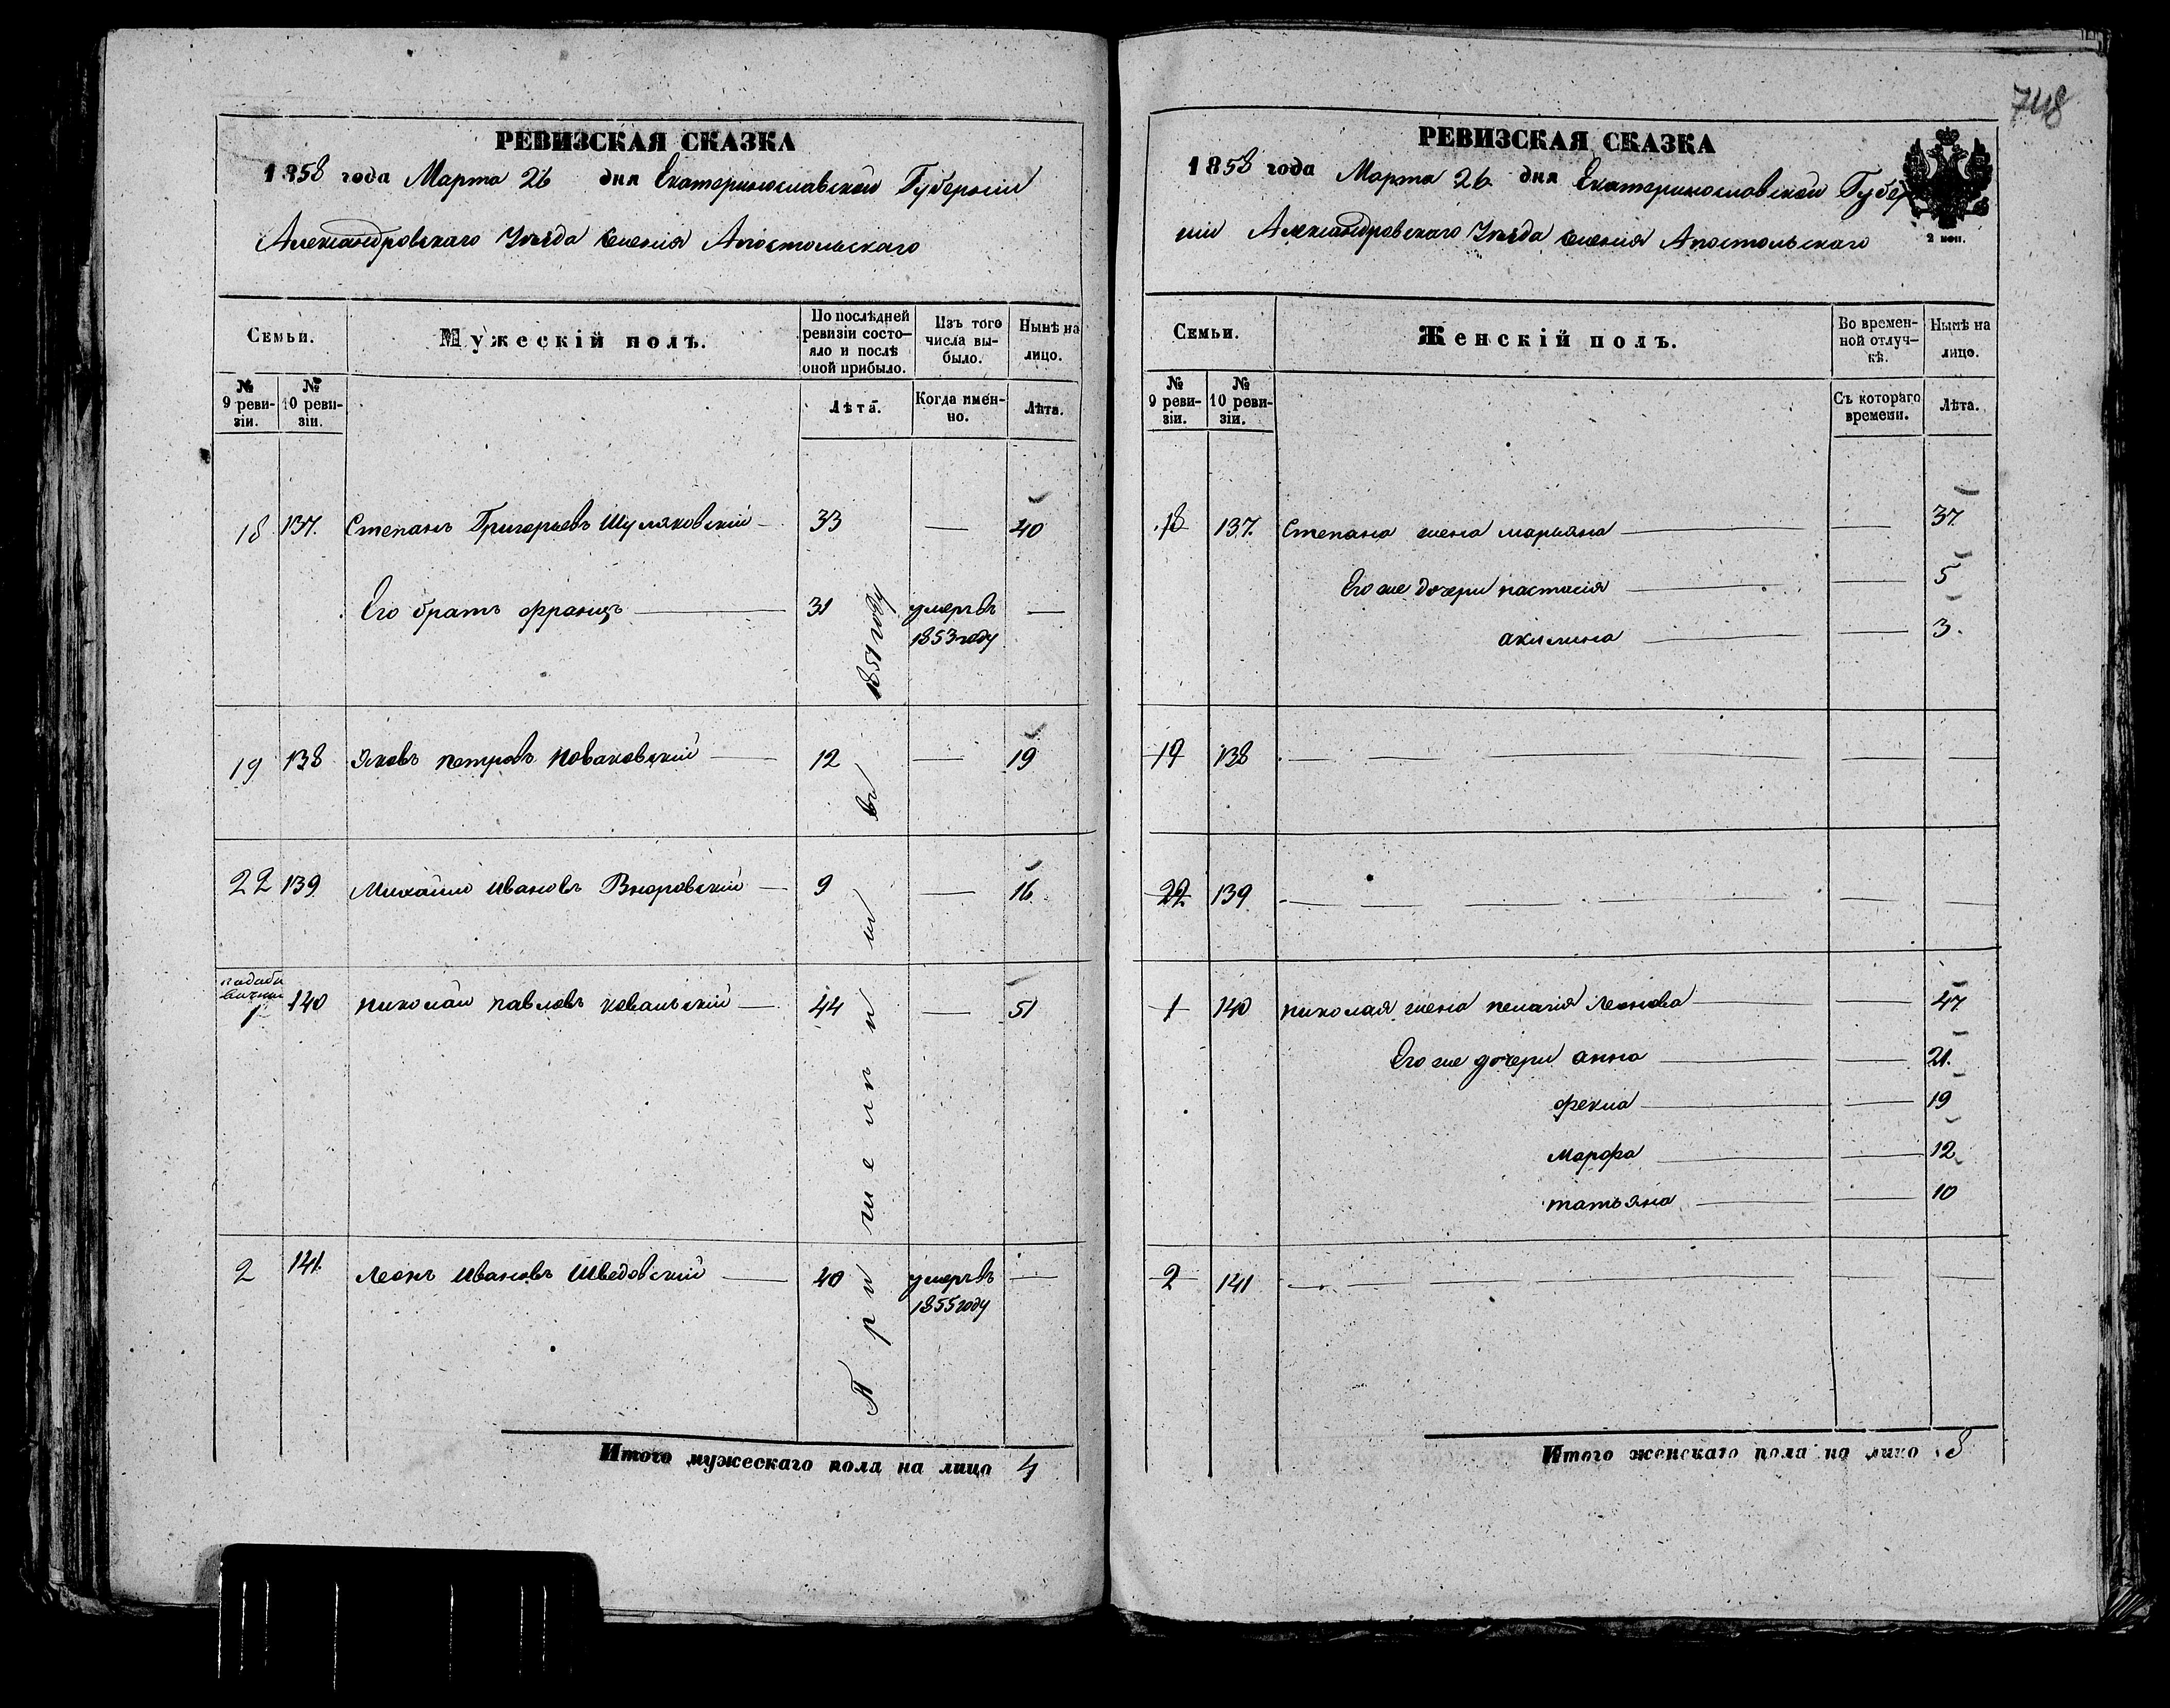 748
РЕВИЗСКАЯ СКАЗКА
1858 года Марта 26 дня Екатеринославской Губерніи
Александровскаго Уѣзда селенія Апостольскаго
Семьи.
Мужескій полъ.
По послѣдней ревизіи состо-
яло и послѣ
оной прибыло.
Изъ того
числа вы-
было.
Нынѣ на
лицо.
№ 9 реви-
зіи.
№ 10 реви-
зіи.
Лѣта.
Когда имен-
но.
Лѣта.
18 137. Степанъ Григорьевъ Шуляковскій 33 — 40
Его братъ францъ 31 умеръ въ —
1853 году
19 138 Яковъ петровъ Новаковскій 12 — 19
22 139 Михайло Ивановъ Вноровскій 9 — 16
1 140 николай павловъ ковальскій 44 — 51
2 141 Леонъ Ивановъ Шведовскій 40 умеръ въ —
1855 году
въ 1851 году
Итого мужескаго пола на лицо 4
РЕВИЗСКАЯ СКАЗКА
1858 года Марта 26 дня Екатеринославской Губер
ніи Александровскаго Уѣзда селенія Апостольскаго
2 коп.
Семьи.
Женскій полъ.
Во времен-
ной отлуч-
кѣ.
Нынѣ на
лицо.
№ 9 реви-
зіи.
№ 10 реви-
зіи.
Съ котораго
времени.
Лѣта.
18 137. Степана жена марьяна — 37
Его же дочери настасія — 5
акилина — 3.
19 138 — — —
22 139 — — —
1 140 николая жена пелагія Леонова — 47
Его же дочери анна — 21.
фекла — 19
Марфа — 12
татьяна — 10
2 141 — — —
Итого женскаго пола на лицо 8